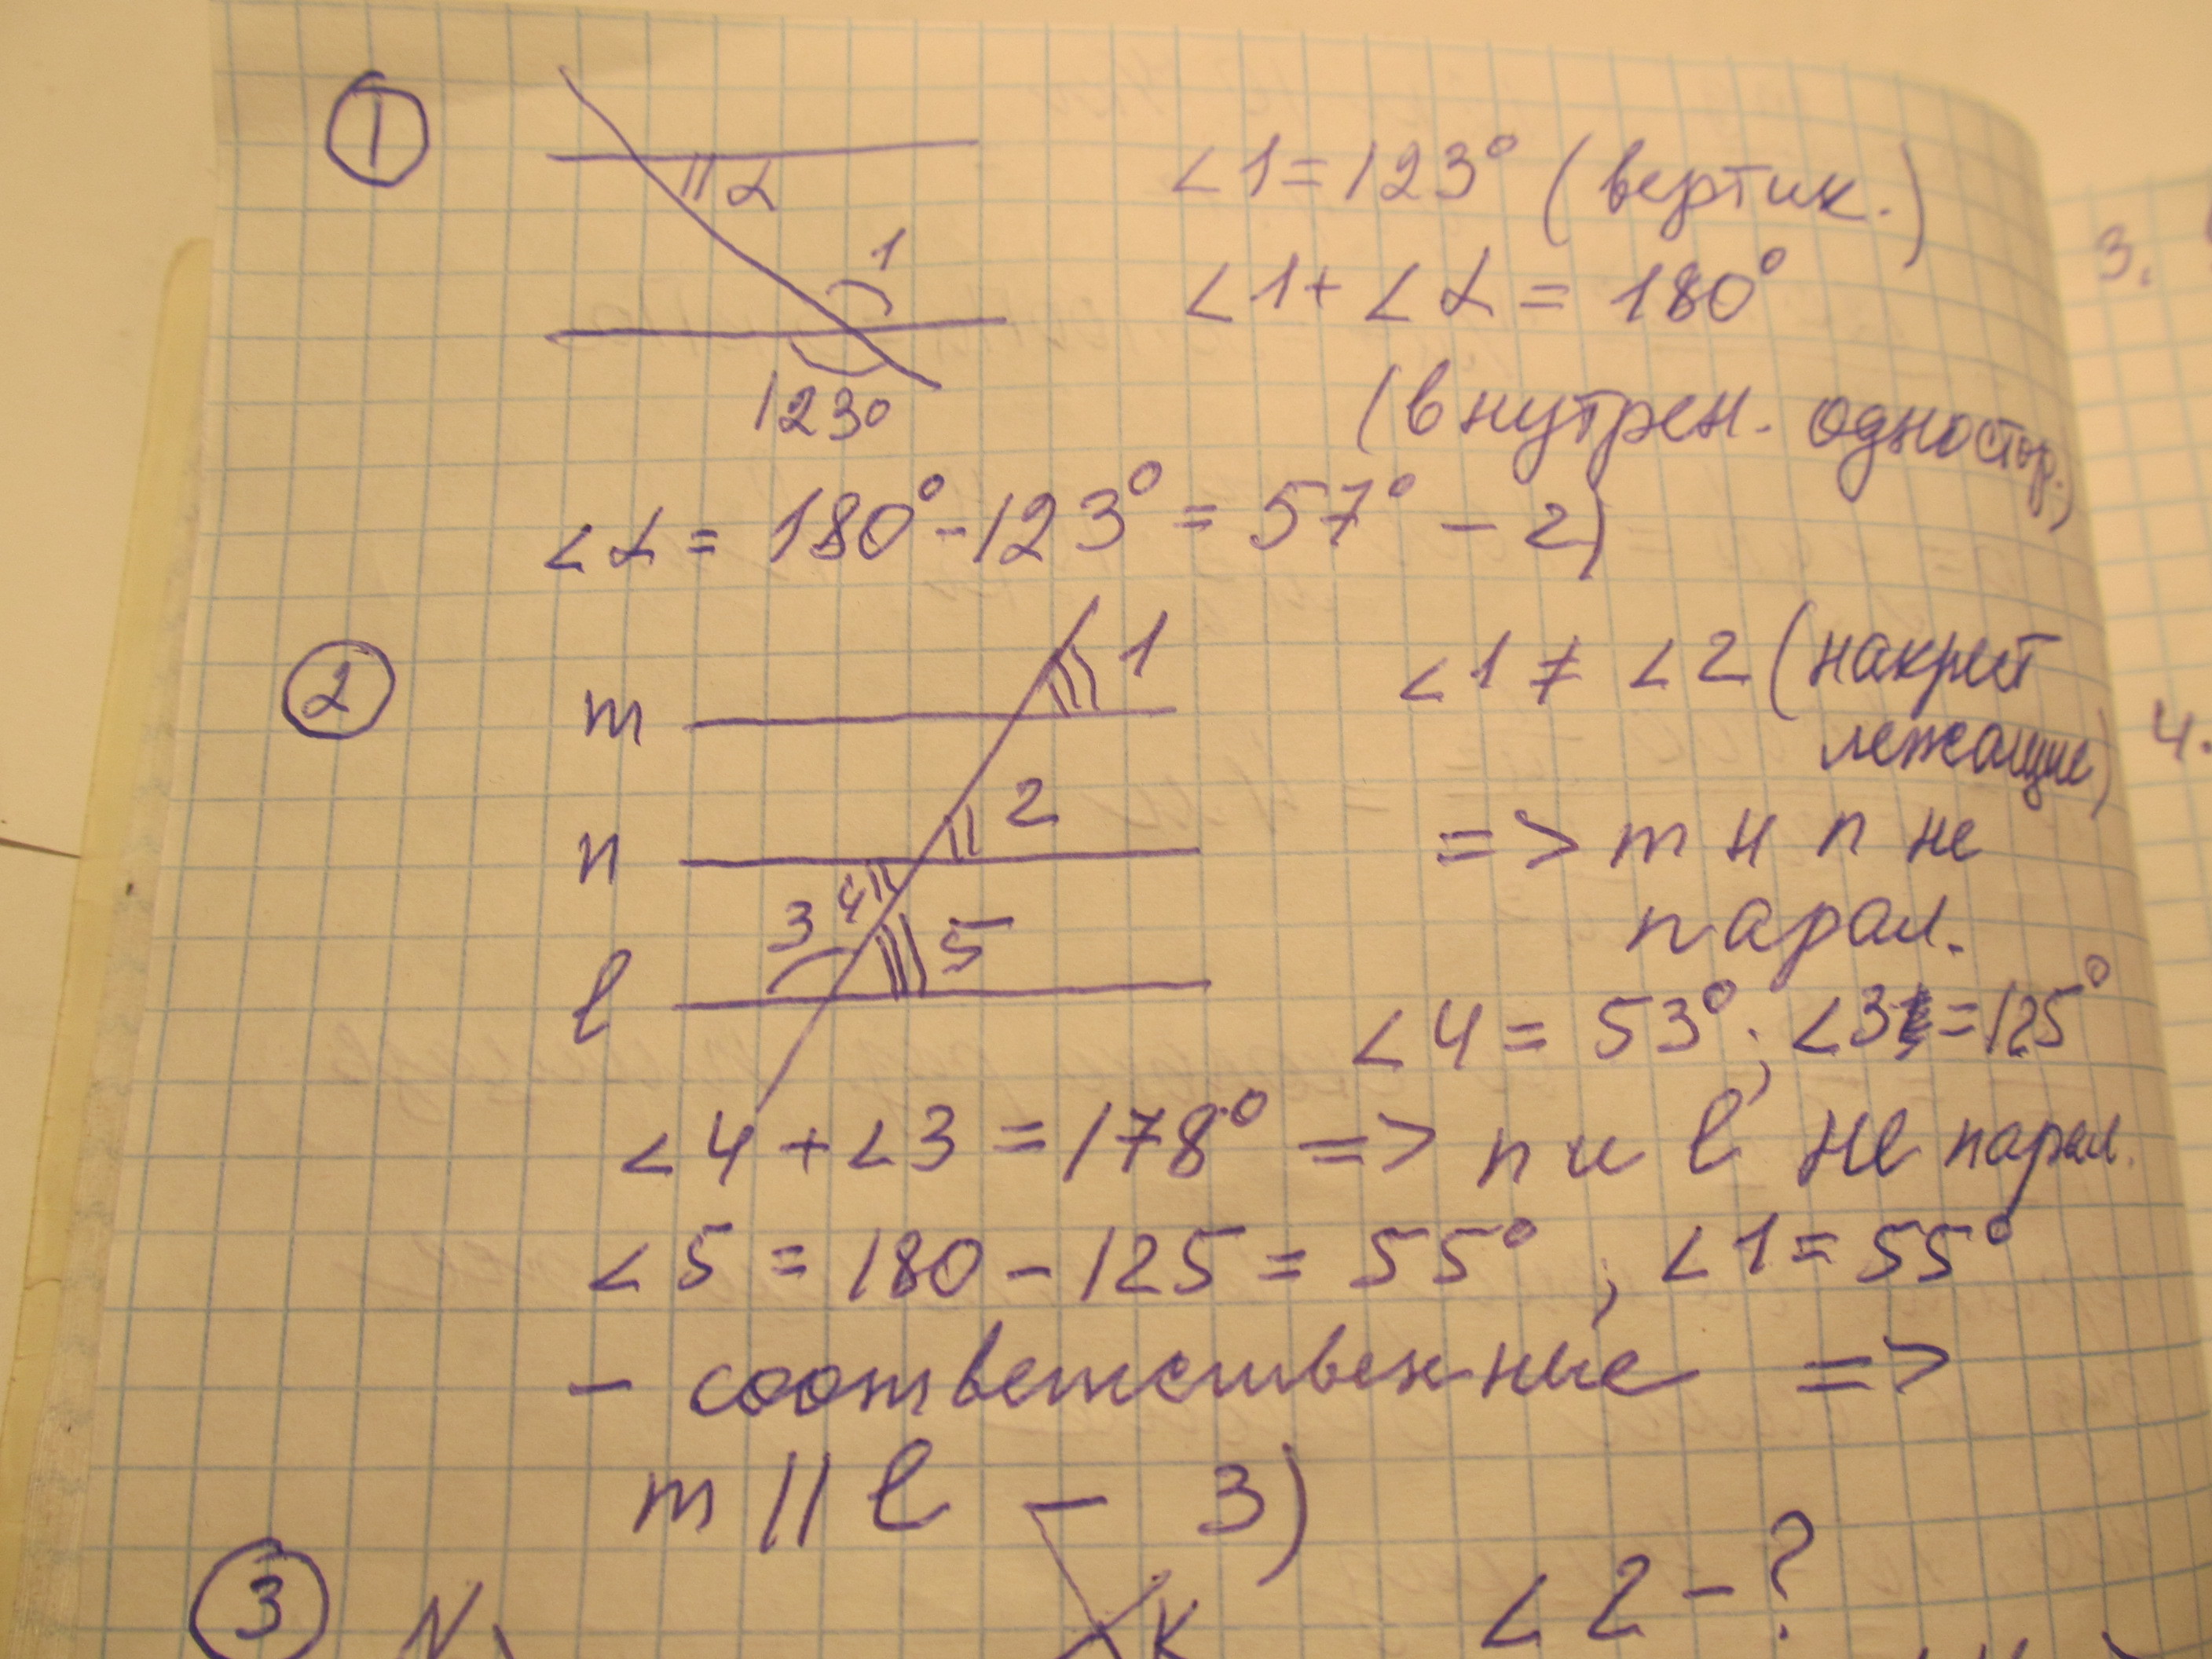 1
α
1
123°
∠1 = 123° (вертик.)
∠1 + ∠α = 180°
(внутрен. одностор.)
∠α = 180° - 123° = 57° - 2)
2
m
1
n
2
3 4
5
l
∠1 ≠ ∠2 (накрест
лежащие)
=> m и n не
парал.
∠4 = 53°; ∠3 = 125°
∠4 + ∠3 = 178° => n и l не парал.
∠5 = 180 - 125 = 55°; ∠1 = 55°
- соответственные =>
m || l - 3)
3
N
K
∠2 - ?
3.
4.